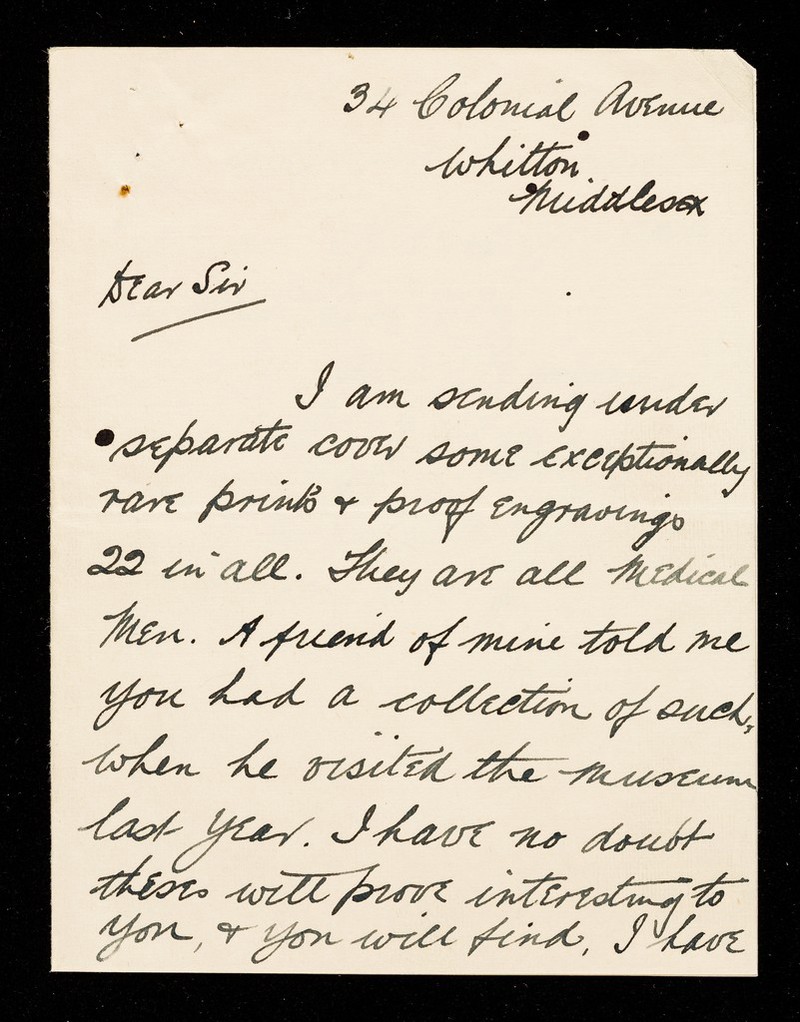 34 Colonial Avenue
Whitton
Middlesex
Dear Sir
I am sending under
separate cover some exceptionally
rare prints & proof Engravings
22 in all. They are all Medical
Men. A friend of mine told me
you had a collection of such,
when he visited the museum
last year. I have no doubt
theses will prove interesting to
you, & you will find, I have